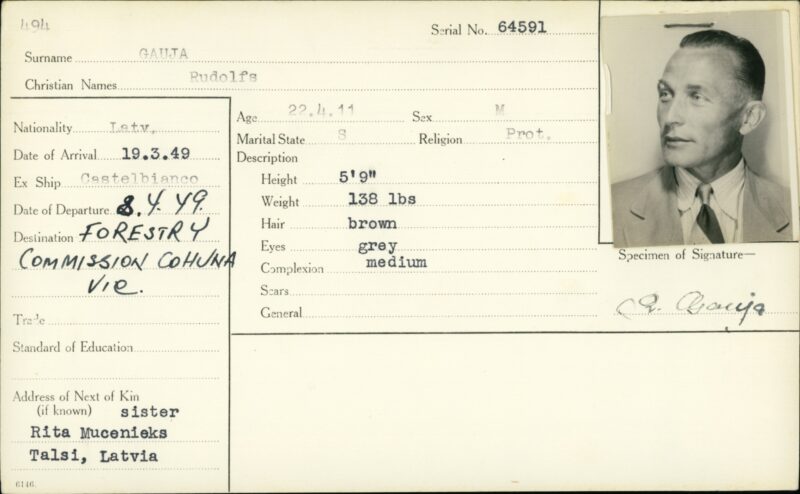 494
Serial No. 64591
Surname GAUJA
Christian Names Rudolfs
Nationality Latv.
Date of Arrival 19.3.49
Ex Ship Castelbianco
Date of Departure 8.4.49.
Destination FORESTRY
COMMISSION COHUNA
VIC.
Trade
Standard of Education
Address of Next of Kin
(if known) sister
Rita Mucenieks
Talsi, Latvia
6146
Age 22.4.11 Sex M
Marital State S Religion Prot.
Description
Height 5'9"
Weight 138 lbs
Hair brown
Eyes grey
Complexion medium
Scars
General
Specimen of Signature—
R. Gauja